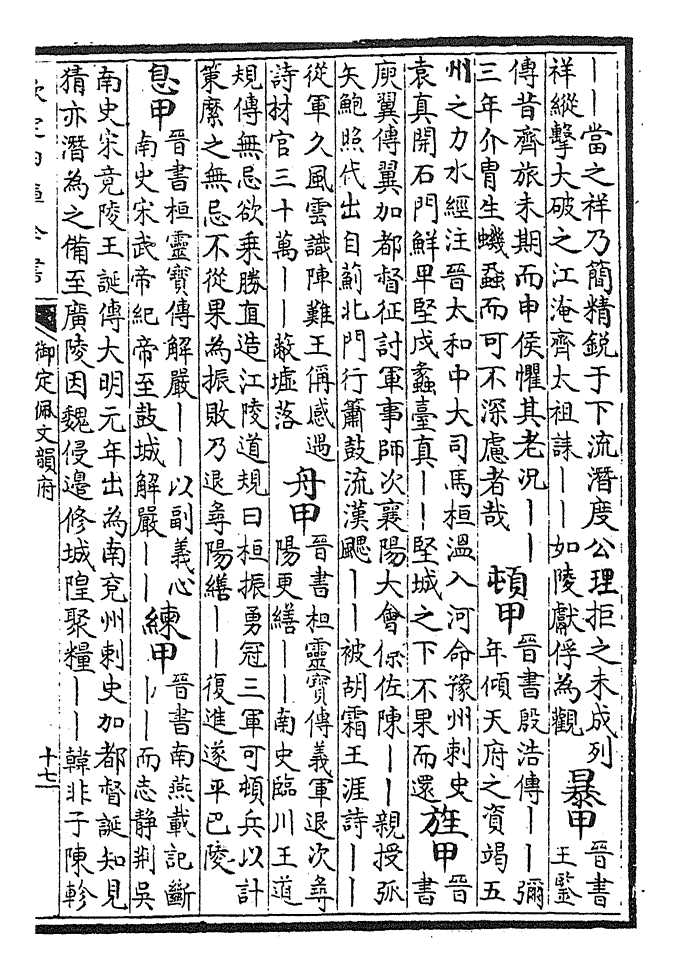 ——當之祥乃簡精銳于下流潛度公理拒之未成列
祥縱擊大破之江淹齊太祖誄——如陵獻俘為觀
暴甲
晉書
王鑒
傳昔齊旅未期而申侯懼其老況——
三年介胄生蟣蝨而可不深慮者哉
頓甲
晉書殷浩傳——彌
年傾天府之資竭五
州之力水經注晉太和中大司馬桓溫入河命豫州刺史
袁真開石門鮮卑堅戍蠡臺真——堅城之下不果而還
旌甲
晉
書
庾翼傳翼加都督征討軍事師次襄陽大會僚佐陳——親授弧
矢鮑照代出自薊北門行簫鼓流漢颸——被胡霜王涯詩——
從軍久風雲識陣難王偁感遇
詩材官三十萬——蔽墟落
舟甲
晉書桓靈寶傳義軍退次尋
陽更繕——南史臨川王道
規傳無忌欲乘勝直造江陵道規曰桓振勇冠三軍可頓兵以計
策縻之無忌不從果為振敗乃退尋陽繕——復進遂平巴陵
息甲
晉書桓靈寶傳解嚴——以副義心
南史宋武帝紀帝至彭城解嚴——
練甲
晉書南燕載記斷
——而志静荆吳
南史宋竟陵王誕傳大明元年出為南兗州刺史加都督誕知見
猜亦潛為之備至廣陵因魏侵邊修城隍聚糧——韓非子陳軫
欽定四庫全書
御定佩文韻府
十七